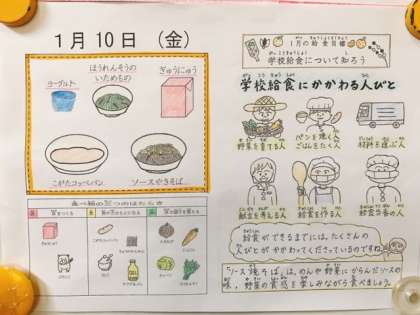 1月10日 (金)
ヨーグルト
ほうれんそうの
いためもの
ぎゅうにゅう
こがたコッペパン
ソースやきそば
食べ物の三つのはたらき
1月の給食目標
学校給食について知ろう
学校給食にかかわる人びと
野菜を育てる人
パンを焼く人
ごはんをたく人
材料を運ぶ人
献立を考える人
給食を作る人
給食当番の人
給食ができるまでには、たくさんの
人びとがかかわってくださっているのですね。
「ソース焼そば」は、めんや野菜にからんだソースの
味、野菜の食感を楽しみながら食べましょう。